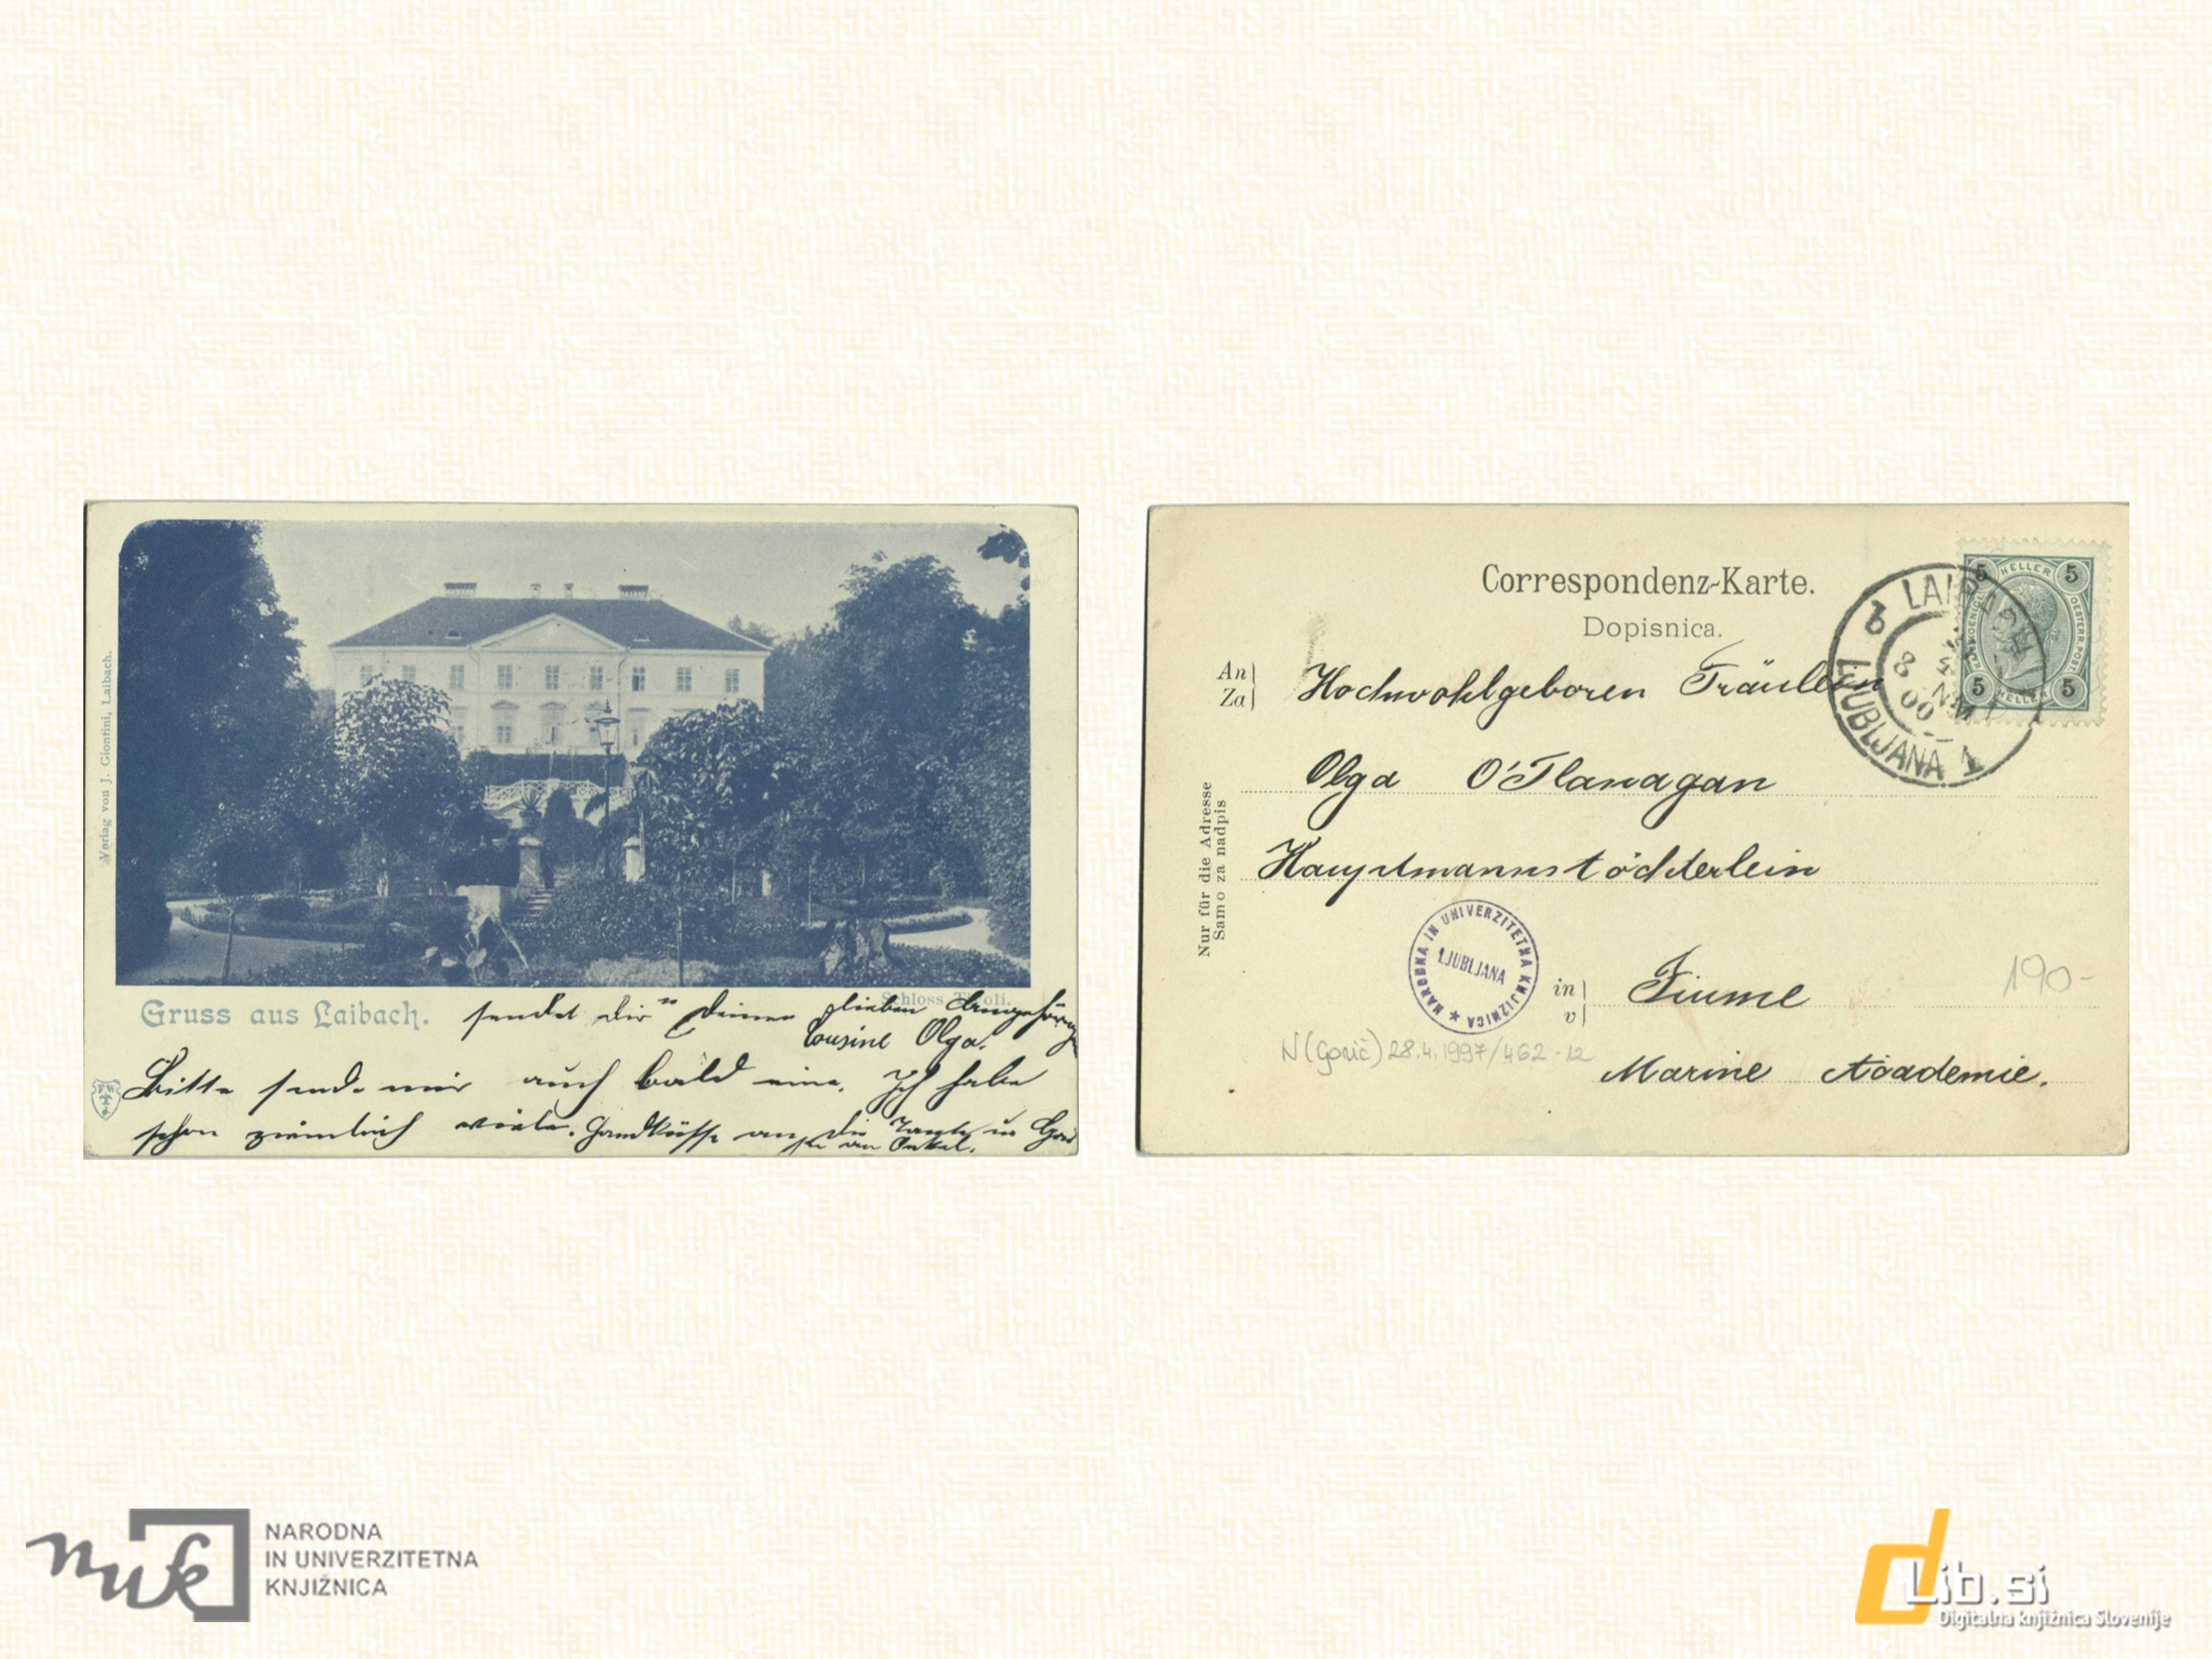 Verlag von J. Giontini, Laibach.
Schloss Tivoli.
Gruss aus Laibach. sendet dir Deine
Cousine Olga.
Bitte sende mir auch bald eine. Ich habe
schon ziemlich viele. Handküsse an die Tante
an Onkel.
Correspondenz-Karte.
Dopisnica.
An
Za
Hochwohlgeboren Fräulein
Olga O'Flanagan
Hauptmannstöchterlein
in
v
Fiume
Marine Academie.
Nur für die Adresse
Samo za nadpis
LAIBACH
LJUBLJANA 1
5 HELLER 5
5 HELLER 5
NARODNA IN UNIVERZITETNA KNJIŽNICA
LJUBLJANA
190-
N (Gorič) 28.4.1997/462-12
nuk
NARODNA
IN UNIVERZITETNA
KNJIŽNICA
dLib.si
Digitalna knjižnica Slovenije